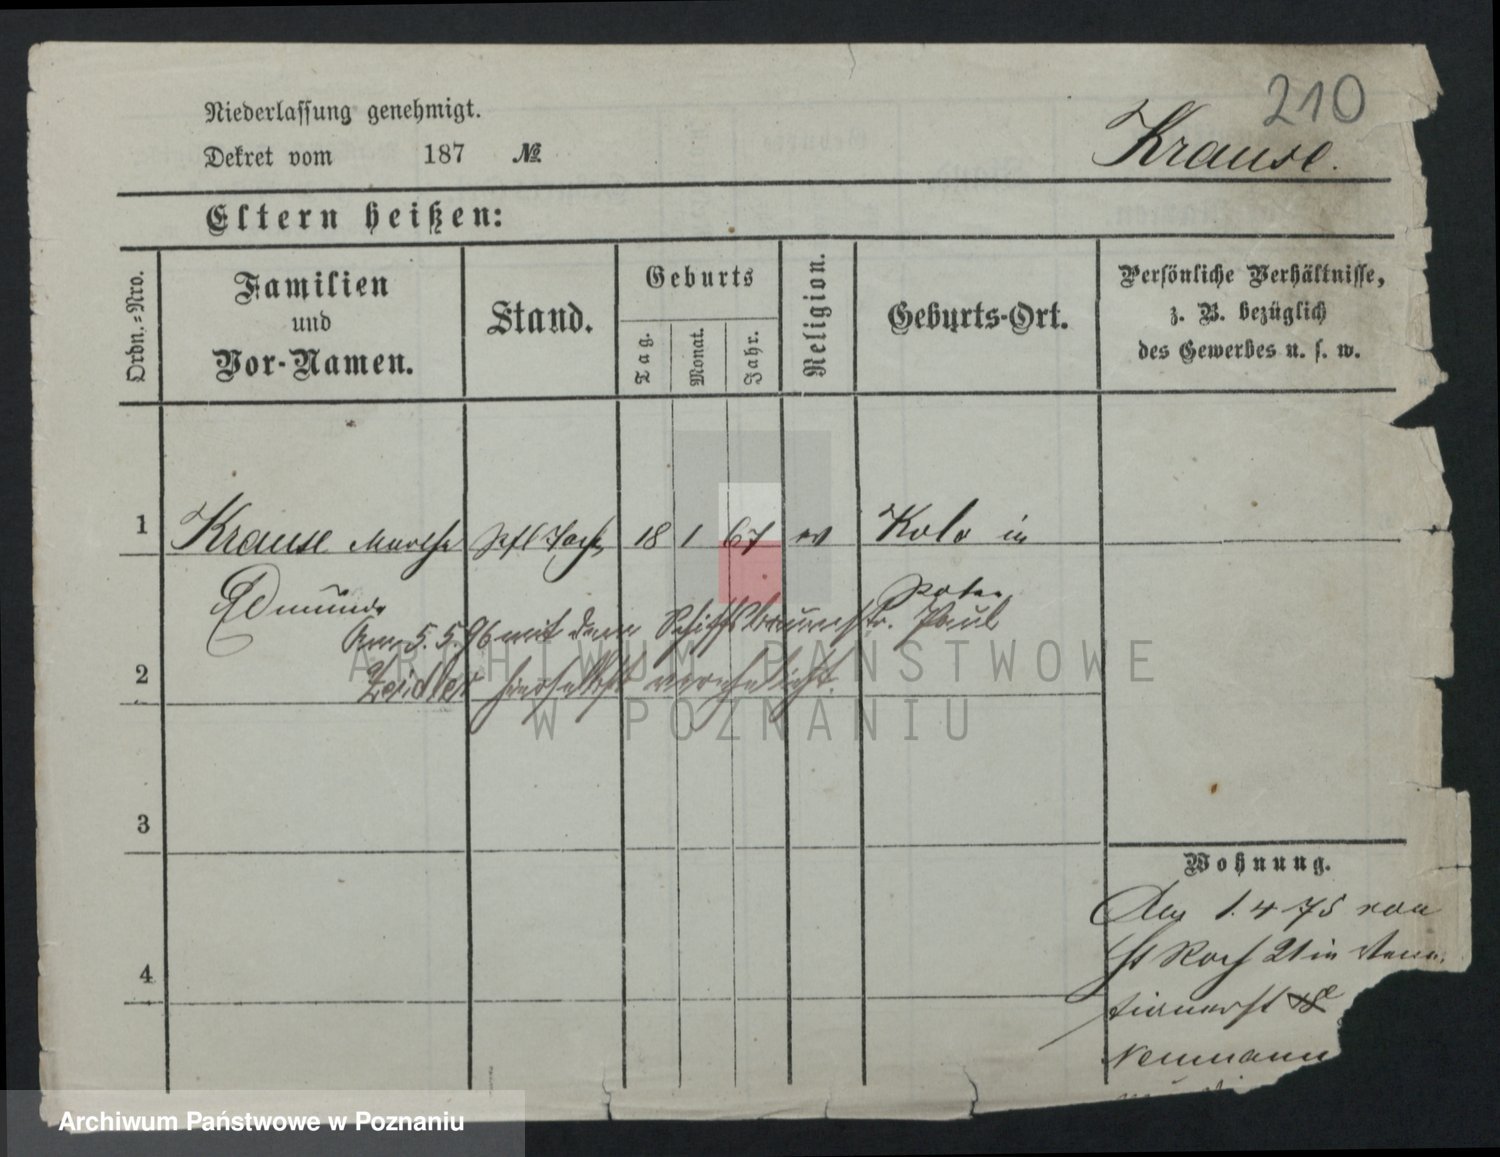 210
Niederlassung genehmigt.
Krause.
Dekret vom 187 №
Eltern heißen:
Ordn.=Nro.
Familien
und
Vor-Namen.
Stand.
Geburts
Tag.
Monat.
Jahr.
Religion.
Geburts-Ort.
Persönliche Verhältnisse,
z. B. bezüglich
des Gewerbes u. s. w.
1 Krause Martha 18 1 67 ev Kolo in
Edmunda Polen
Am 5.5.96 mit dem Paul
Zeidler hierselbst verehelicht.
2
3
4
Wohnung.
Am 1.4 75 von
St Roch 21 in
Neumann
ARCHIWUM PAŃSTWOWE
W POZNANIU
Archiwum Państwowe w Poznaniu